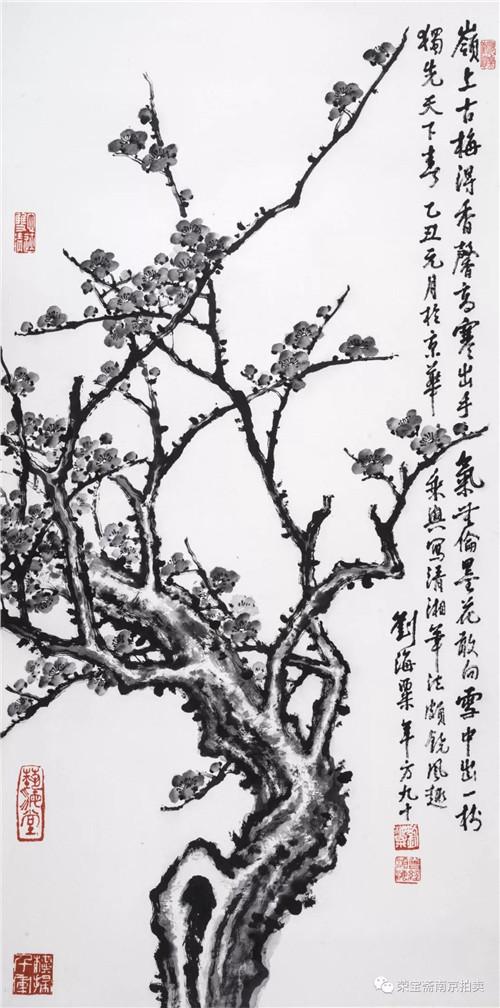 嶺上古梅得香馨高寒出手氣無倫墨花敢向雪中出一樹
獨先天下春 乙丑元月於京華 乘興寫清湘筆法頗饒風趣
劉海粟年方九十
藝海堂
荣宝斋南京拍卖